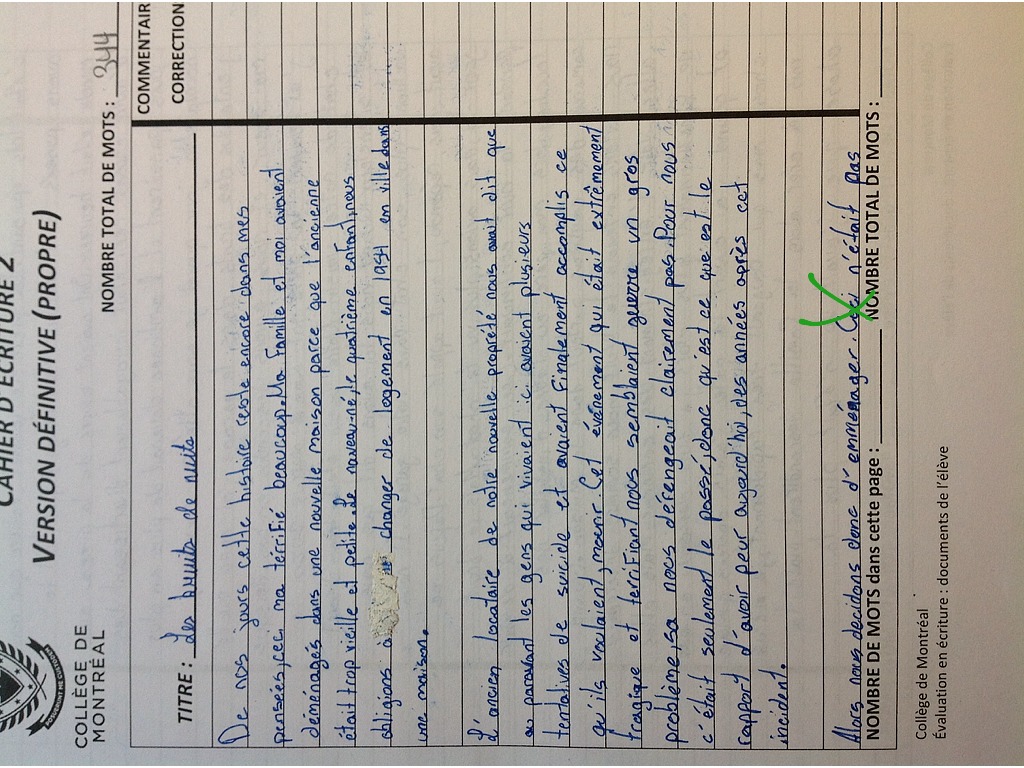 CAHIER D'ÉCRITURE 2
VERSION DÉFINITIVE (PROPRE)
COLLÈGE DE
MONTRÉAL
NOMBRE TOTAL DE MOTS : 344
TITRE : Les bruits de nuits
COMMENTAIR
CORRECTION
De nos jours cette histoire reste encore dans mes
pensées, ceci ma terrifié beaucoup. Ma famille et moi avaient
déménagés dans une nouvelle maison parce que l'ancienne
était trop vieille et petite. Le nouveau-né, le quatrième enfant, nous
obligions à changer de logement en 1954 en ville dans
une maison.
L'ancien locataire de notre nouvelle propreté nous avait dit que
au paravant les gens qui vivaient ici avaient plusieurs
tentatives de suicide et avaient finalement accomplis ce
qu'ils voulaient, mourir. Cet événement qui était extrêmement
tragique et terrifiant nous semblaient guerre un gros
problème, sa nous dérengeait clairement pas. Pour nous
c'était seulement le passé, donc qu'est ce que est le
rapport d'avoir peur aujourd'hui, des années après cet
incident.
Alors nous decidons donc d'emménager. Ceci n'était pas
NOMBRE DE MOTS dans cette page :
NOMBRE TOTAL DE MOTS :
Collège de Montréal
Évaluation en écriture : documents de l'élève